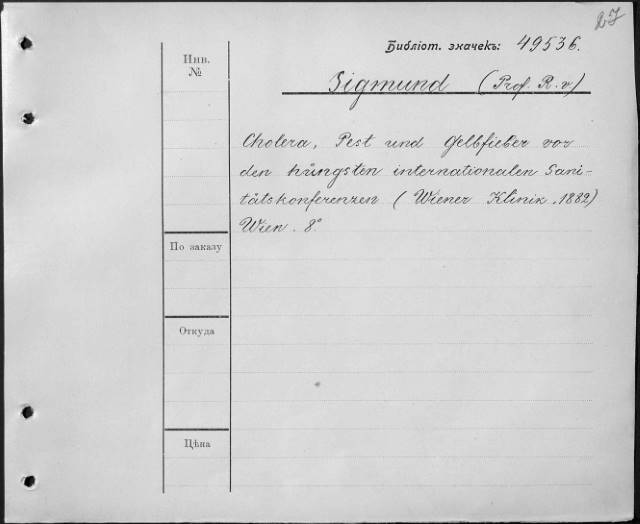 27
Библіот. значекъ: 49536.
Инв.
№
Sigmund (Prof. R. v)
Cholera, Pest und Gelbfieber vor
den hüngsten internationalen Sani-
tätskonferenzen (Wiener Klinik. 1882)
Wien. 8°
По заказу
Откуда
Цѣна